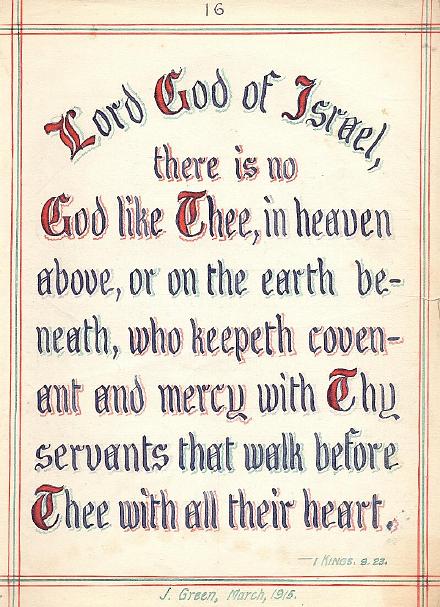 16
Lord God of Israel,
there is no
God like Thee, in heaven
above, or on the earth be-
neath, who keepeth coven-
ant and mercy with Thy
servants that walk before
Thee with all their heart.
— 1 KINGS. 8. 23.
J. Green, March, 1915.